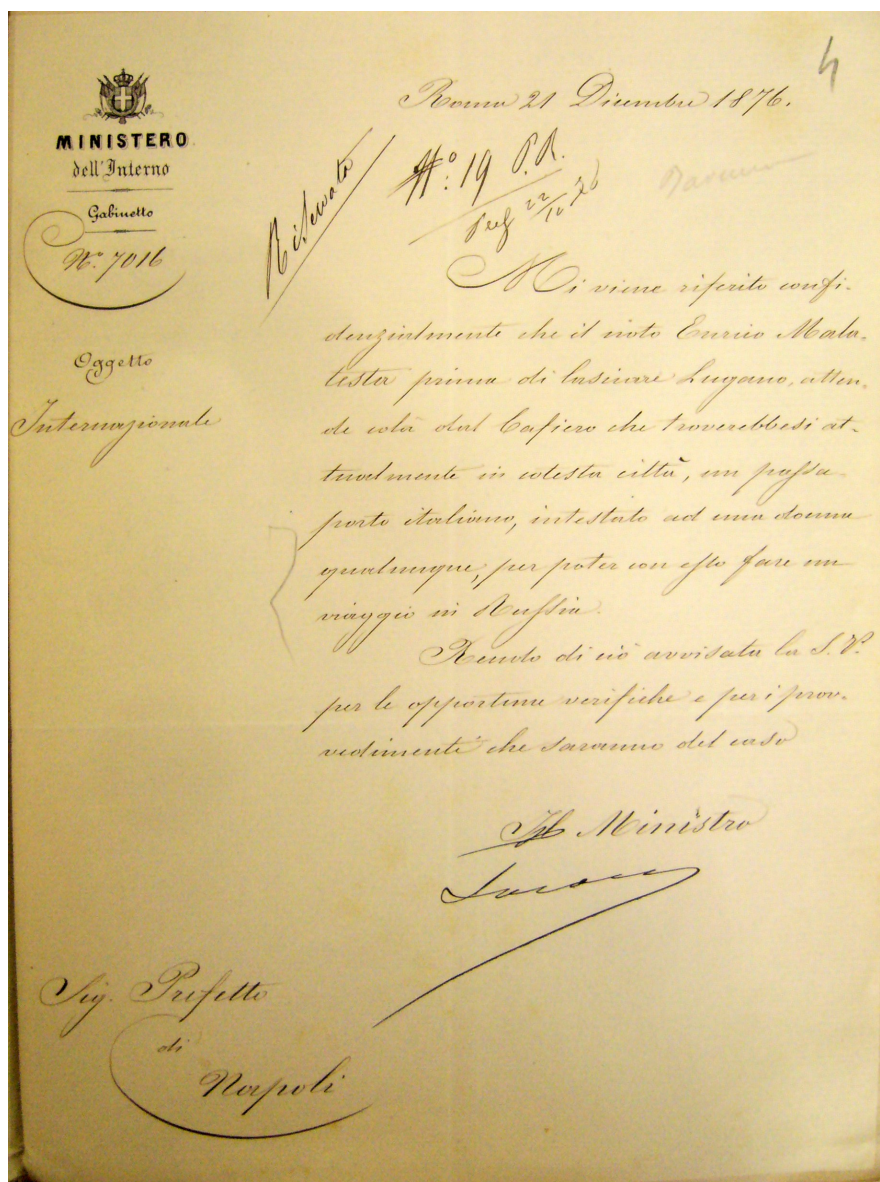 4
Roma 21 Dicembre 1876.
MINISTERO
dell'Interno
Gabinetto
N.° 7016
Riservata
N.° 19 P.R.
22/12 76
Oggetto
Internazionale
Mi viene riferito confi-
denzialmente che il noto Enrico Mala-
testa prima di lasciare Lugano, atten-
de colà dal Cafiero che troverebbesi at-
tualmente in codesta città, un passa
porto italiano, intestato ad una donna
qualunque, per poter con esso fare un
viaggio in Russia.
Rendo di ciò avvisata la S.V.
per le opportune verifiche e per i prov-
vedimenti che saranno del caso
Il Ministro
Sig. Prefetto
di
Napoli